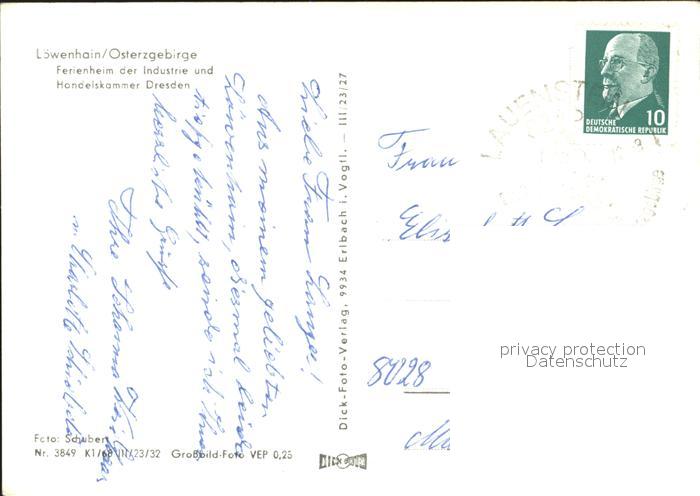 Löwenhain/Osterzgebirge
Ferienheim der Industrie und
Handelskammer Dresden
Liebe Frau Langer!
Aus meinem geliebten
Löwenhain, diesmal leider
sende ich Ihnen
herzliche Grüße
Ihre Johanna
u. Charlotte
Foto: Schubert
Nr. 3849 K1/68 III/23/32 Großbild-Foto VEP 0,25
Dick-Foto-Verlag, 9934 Erlbach i. Vogtl. — III/23/27
DICK
LAUENSTEIN
10
DEUTSCHE
DEMOKRATISCHE REPUBLIK
Frau
8028
privacy protection
Datenschutz